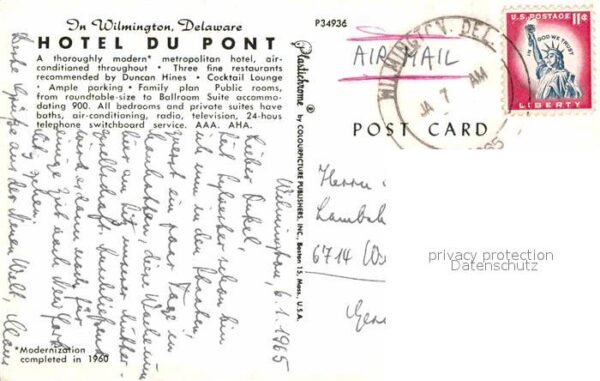 In Wilmington, Delaware
HOTEL DU PONT
A thoroughly modern* metropolitan hotel, air-
conditioned throughout • Three fine restaurants
recommended by Duncan Hines • Cocktail Lounge
• Ample parking • Family plan Public rooms,
from roundtable-size to Ballroom Suite accommo-
dating 900. All bedrooms and private suites have
baths, air-conditioning, radio, television, 24-hour
telephone switchboard service. AAA. AHA.
*Modernization
completed in 1960
P34936
Plastichrome ® by COLOURPICTURE PUBLISHERS, INC., Boston 15, Mass., U.S.A.
AIR MAIL
WILMINGTON, DEL.
JA 7 AM
U.S. POSTAGE 11¢
IN GOD WE TRUST
LIBERTY
POST CARD
Wilmington, 6.1.1965
Lieber Onkel,
seit schon bin
ich nun in den Staaten,
ein paar Tage in
Manhattan, diese Woche in
mit unser
Gesellschaft.
wird es dann noch für
einige Zeit nach New York
gehen.
Grüße aus der Neuen Welt, Klaus
Herrn
6714
privacy protection
Datenschutz